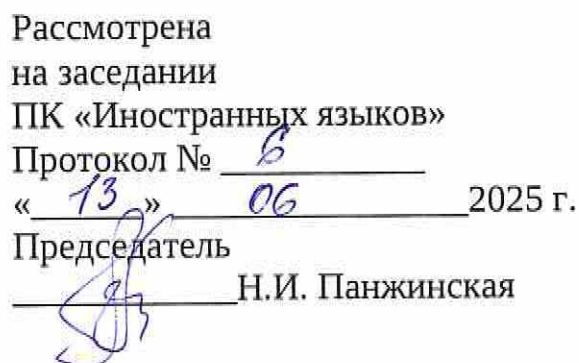 Рассмотрена
на заседании
ПК «Иностранных языков»
Протокол № 6
«13» 06 2025 г.
Председатель
Н.И. Панжинская